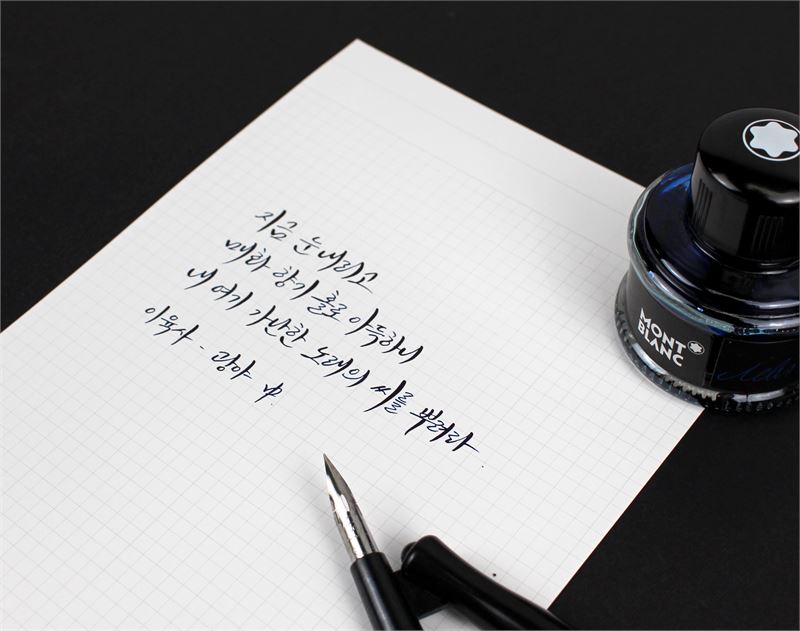 지금 눈 내리고
매화 향기 홀로 아득하니
내 여기 가난한 노래의 씨를 뿌려라.
이육사 - 광야 中
MONT
BLANC